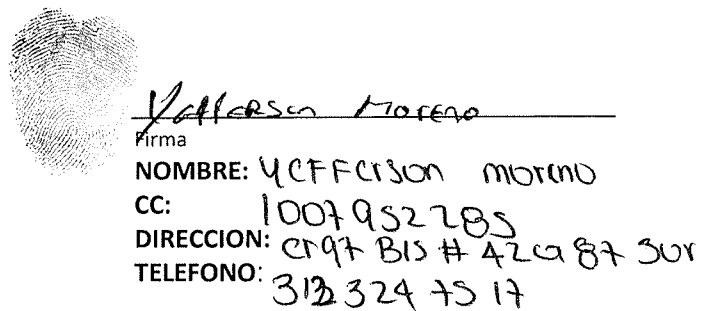 Yefferson Moreno
Firma
NOMBRE: Yefferson moreno
CC: 1007952285
DIRECCION: cr97 BIS # 42a 87 sur
TELEFONO: 313 324 75 17